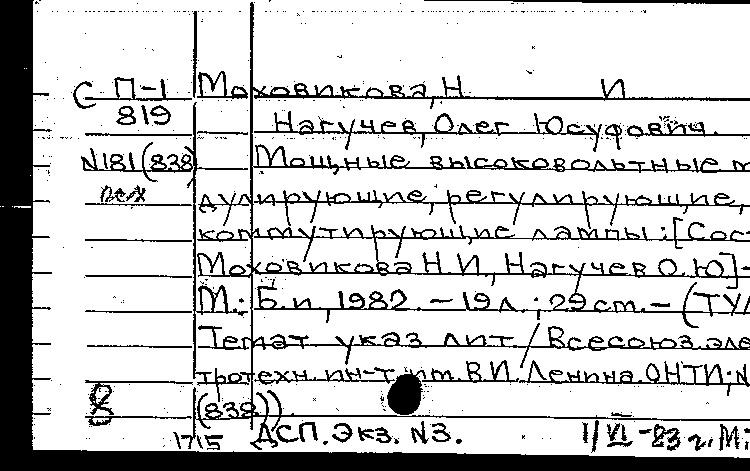 С П-1 Маховикова, Н И
819 Нагучев, Олег Юсуфович.
N181(838) Мощные высоковольтные м
дулирующие, регулирующие,
коммутирующие лампы: [Сос
Маховикова Н.И, Нагучев О.Ю]-
М.: Б.и, 1982. - 19 л.; 29 см. - (ТУ
Темат указ лит / Всесоюз. эле
тротехн. ин-т им. В.И. Ленина. ОНТИ; N
8 (838))
1715 ДСП. Экз. N3. 1/VI-83 г. М: